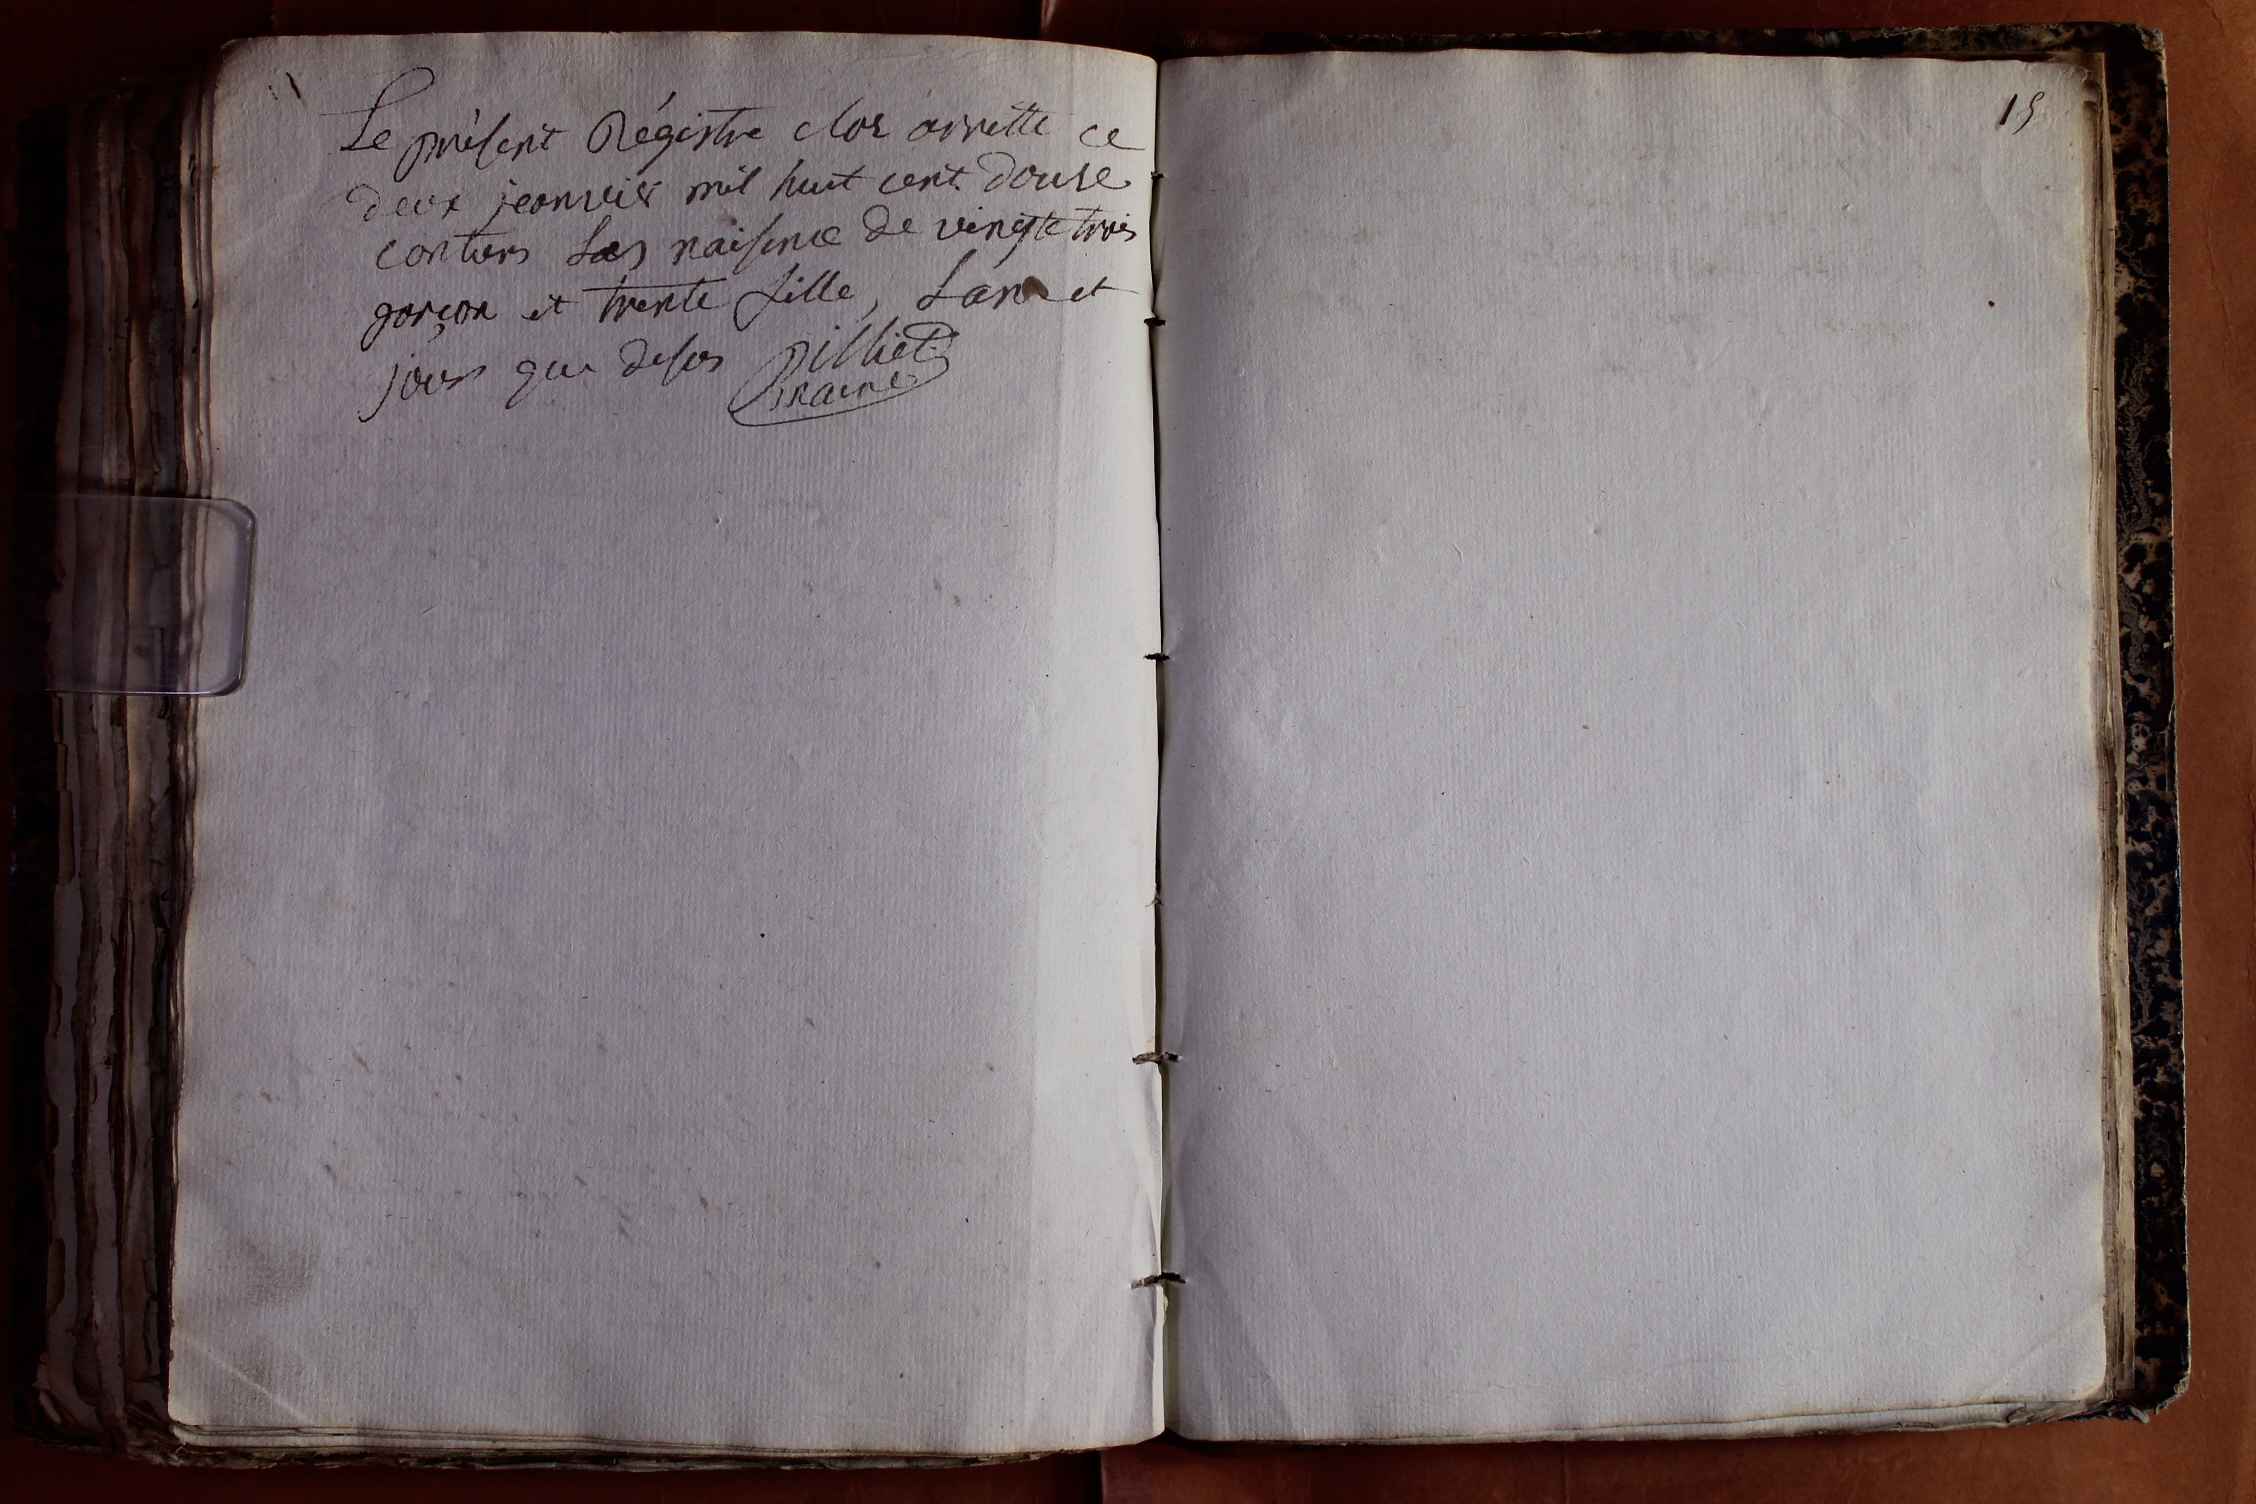 Le présent Régistre clos arrétté ce
deux jeanvier mil huit cent douse
contien Les naisence de vingte trois
garçon et trente fille, Lan et
jour que desus pilliet
maire
15